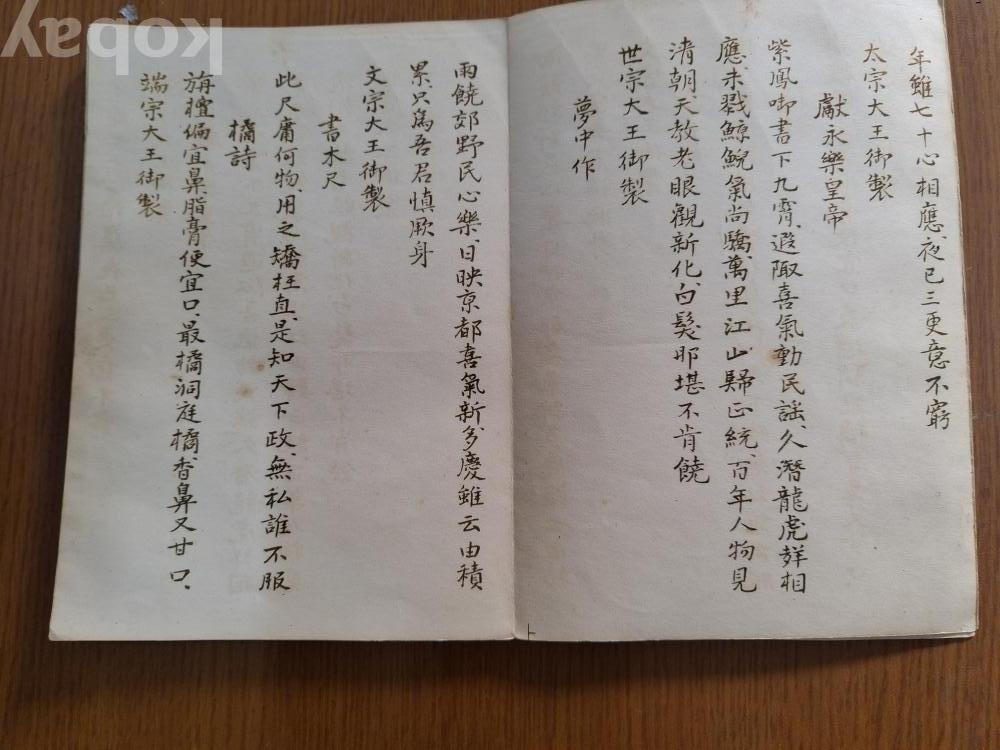 年雖七十心相應夜已三更意不窮
太宗大王御製
獻永樂皇帝
紫鳳啣書下九霄、遐陬喜氣動民謠、久潛龍虎聲相
應、未戮鯨鯢氣尚驕、萬里江山歸正統、百年人物見
清朝、天教老眼觀新化、白髮那堪不肯饒
世宗大王御製
夢中作
雨饒郊野民心樂、日映京都喜氣新、多慶雖云由積
累只爲吾君愼厥身
文宗大王御製
書木尺
此尺膚何物、用之矯枉直、是知天下政、無私誰不服
橘詩
旃檀偏宜鼻、脂膏便宜口、最橘洞庭橘、香鼻又甘口、
端宗大王御製
kobay